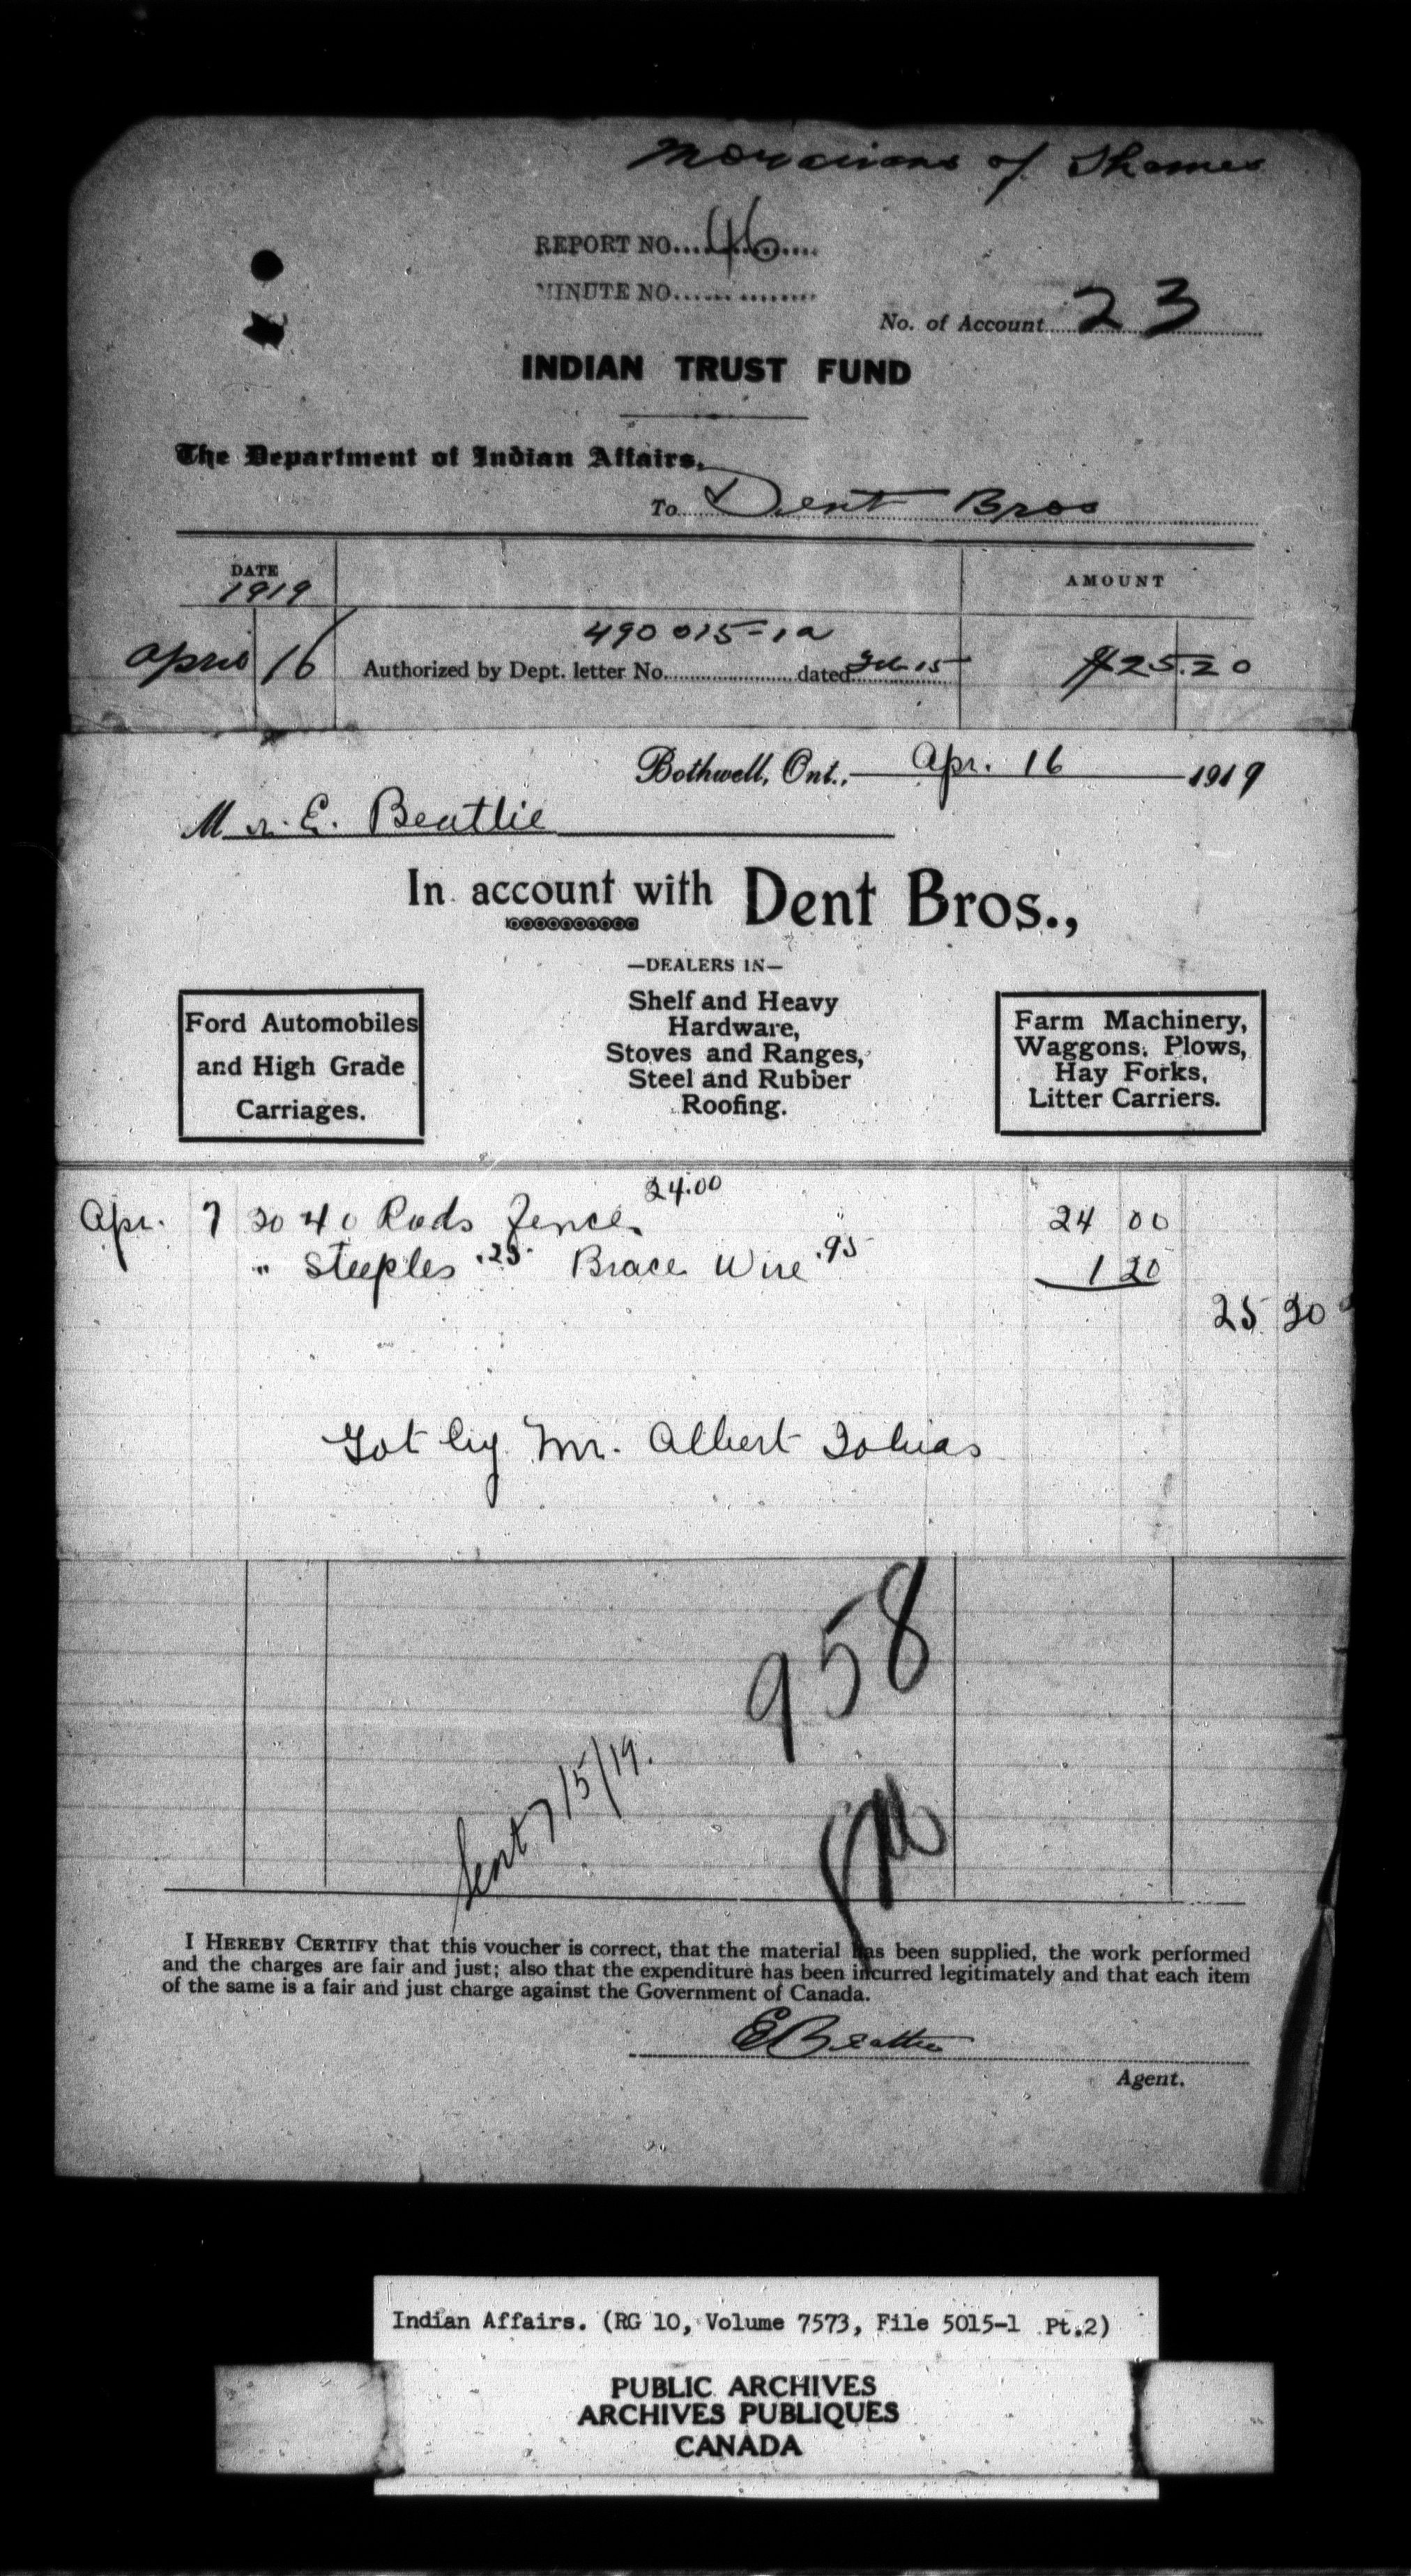 Moravians of Thames
REPORT NO....46....
MINUTE NO................
No. of Account 23
INDIAN TRUST FUND
The Department of Indian Affairs,
To Dent Bros
DATE
1919
AMOUNT
490 015-1a
April 16 Authorized by Dept. letter No. dated Feb 15 $25.20
Bothwell, Ont., Apr. 16 1919
Mr. E. Beattie
In account with Dent Bros.,
—DEALERS IN—
Ford Automobiles
and High Grade
Carriages.
Shelf and Heavy
Hardware,
Stoves and Ranges,
Steel and Rubber
Roofing.
Farm Machinery,
Waggons, Plows,
Hay Forks,
Litter Carriers.
24.00
Apr. 7 40 Rods Fence 24 00
" Steeples .25 Brace Wire .95 1 20
25 20
Got by Mr. Albert Tobias
958
Sent 7/5/19.
I HEREBY CERTIFY that this voucher is correct, that the material has been supplied, the work performed
and the charges are fair and just; also that the expenditure has been incurred legitimately and that each item
of the same is a fair and just charge against the Government of Canada.
E Beattie
Agent.
Indian Affairs. (RG 10, Volume 7573, File 5015-1 Pt.2)
PUBLIC ARCHIVES
ARCHIVES PUBLIQUES
CANADA